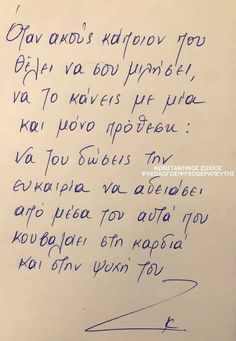 Όταν ακούς κάποιον που
θέλει να σου μιλήσει,
να το κάνεις με μία
και μόνο πρόθεση:
ΚΩΝΣΤΑΝΤΙΝΟΣ ΖΩΧΙΟΣ
ΨΥΧΟΛΟΓΟΣ/ΨΥΧΟΘΕΡΑΠΕΥΤΗΣ
να του δώσεις την
ευκαιρία να αδειάσει
από μέσα του αυτά που
κουβαλάει στη καρδιά
και στην ψυχή του